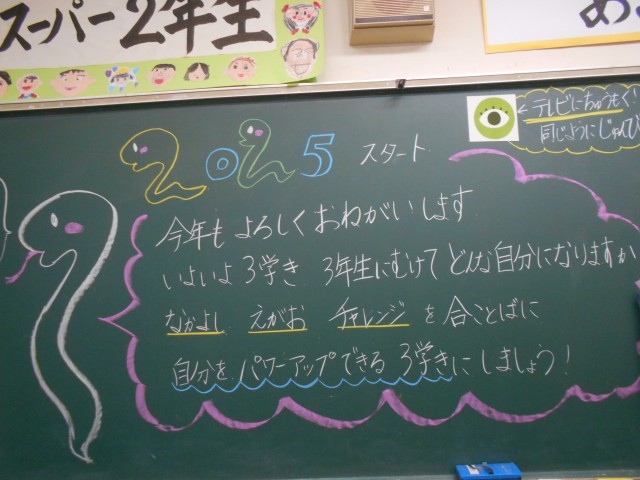 スーパー2年生
あ
←テレビにちゅうもく!
同じようにじゅんび
2025 スタート
今年も よろしく おねがいします
いよいよ 3学き 3年生にむけて どんな自分になりますか
なかよし えがお チャレンジ を 合ことばに
自分を パワーアップできる 3学きにしましょう!